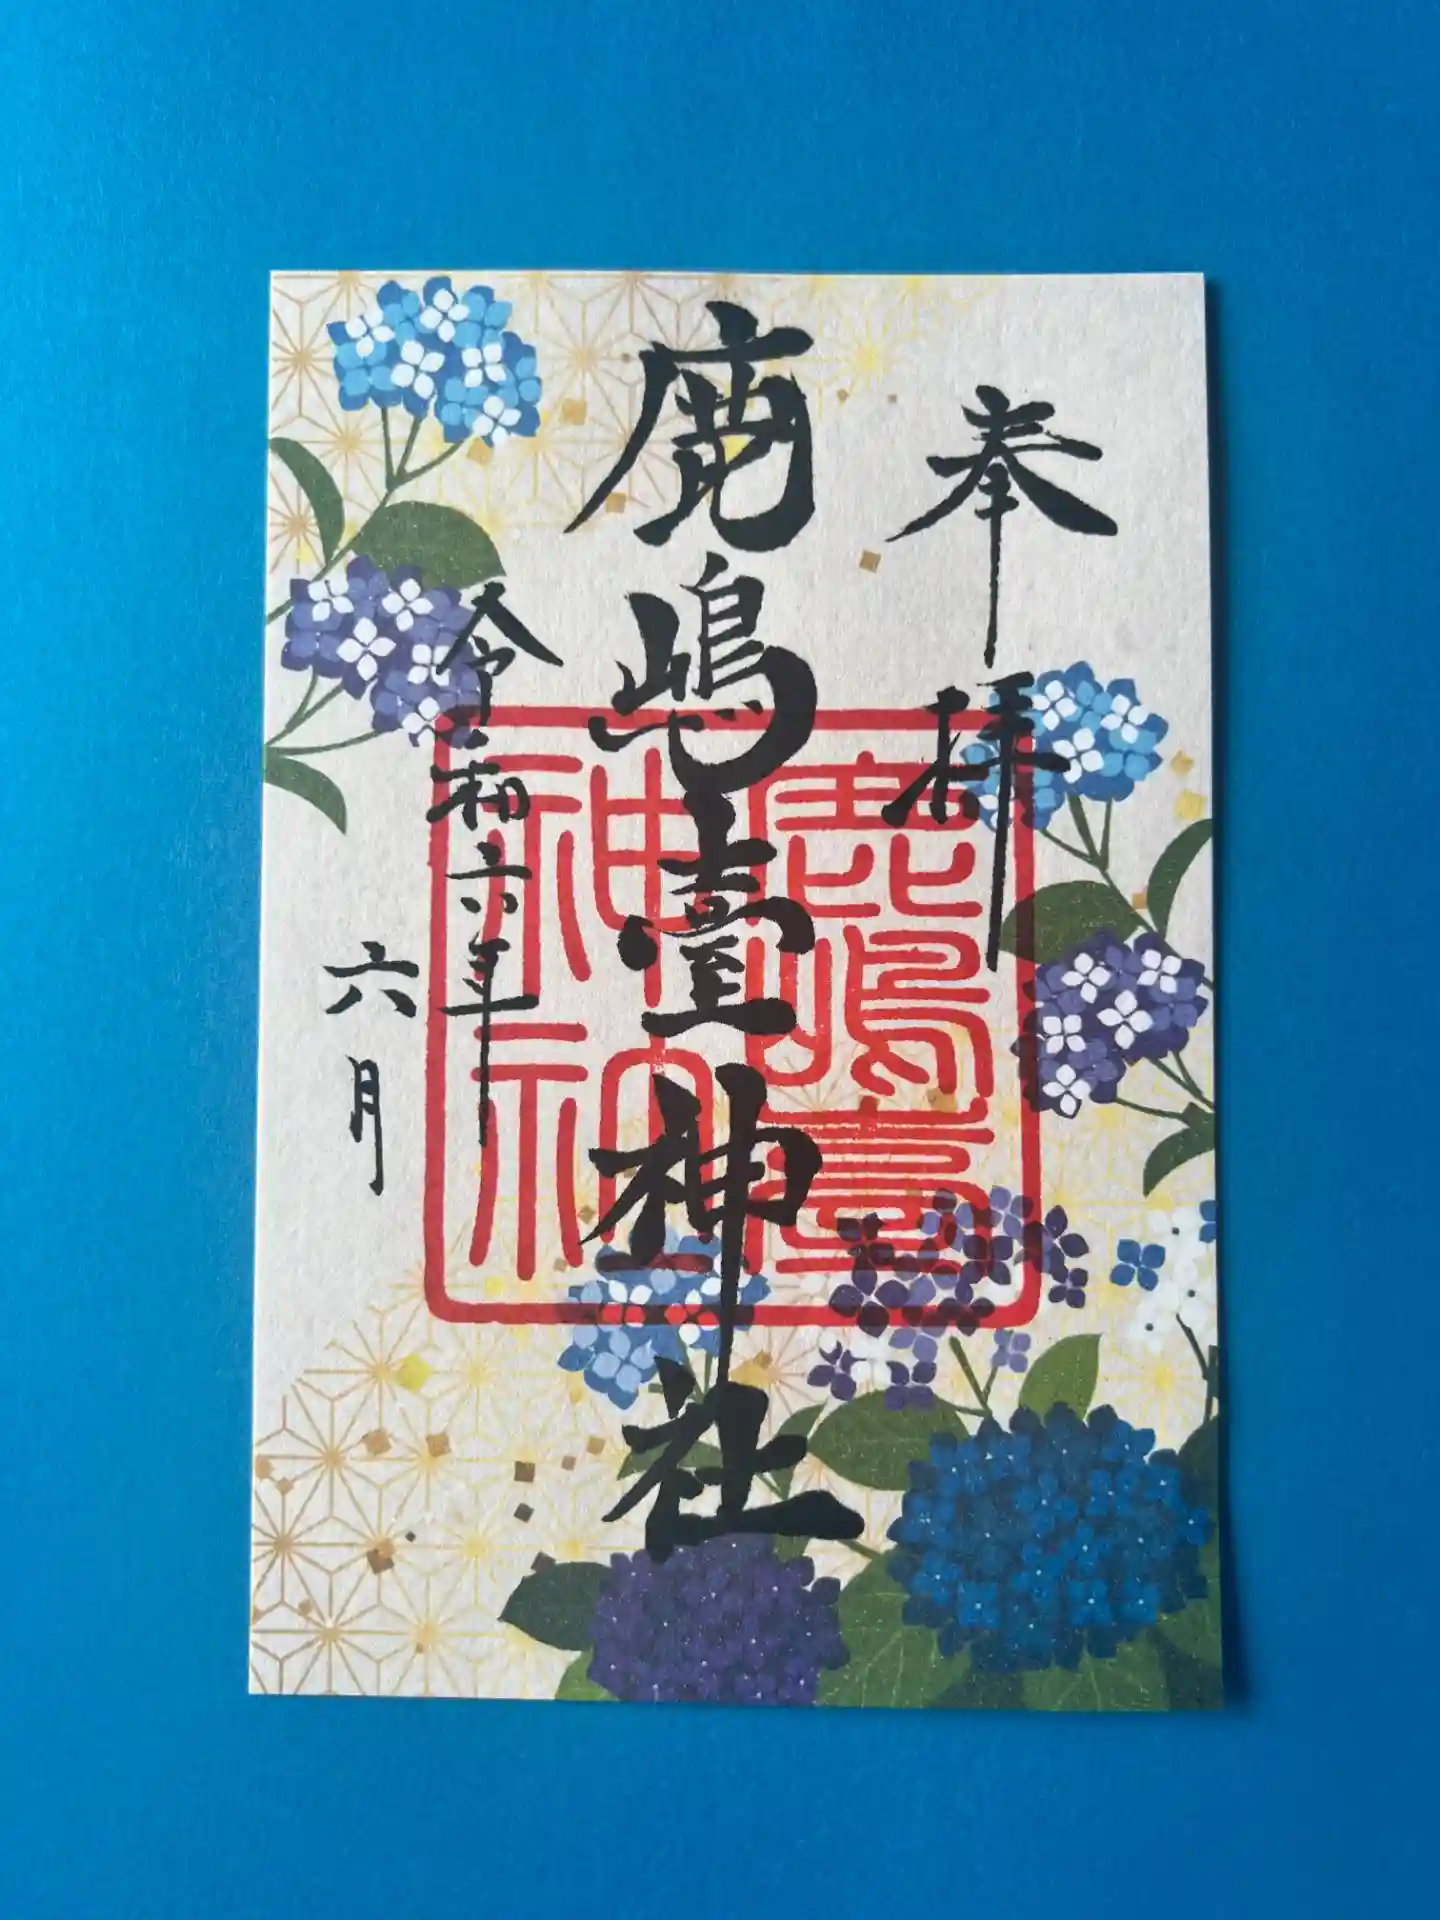 奉拝
鹿嶋臺神社
令和六年
六月
鹿嶋臺
神社